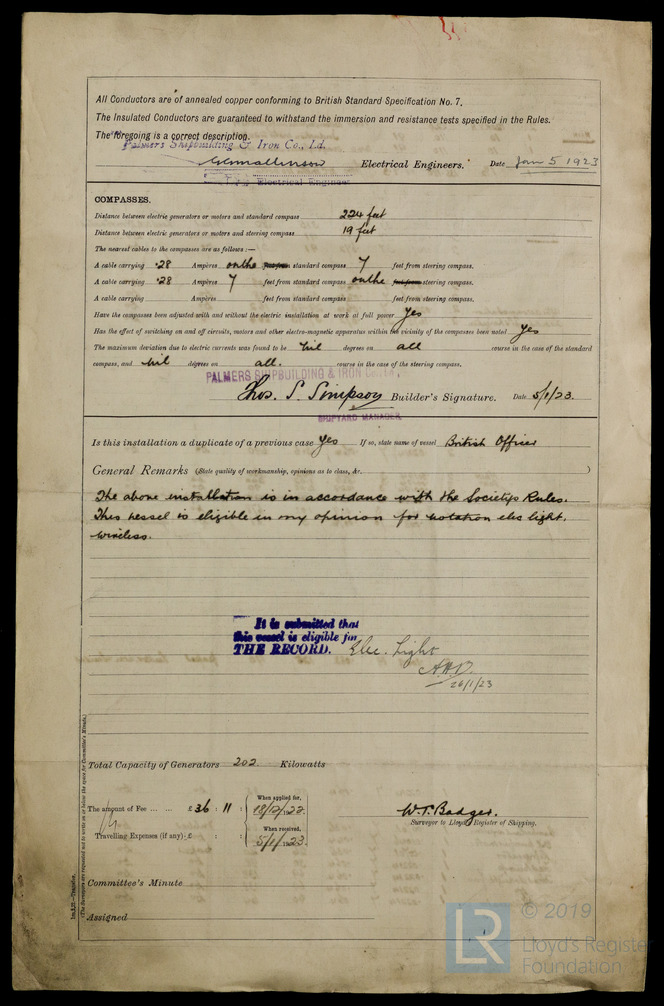 All Conductors are of annealed copper conforming to British Standard Specification No. 7.
The Insulated Conductors are guaranteed to withstand the immersion and resistance tests specified in the Rules.
The foregoing is a correct description.
Palmers Shipbuilding & Iron Co., Ld.
Electrical Engineers. Date Jan 5 1923
Electrical Engineer
COMPASSES.
Distance between electric generators or motors and standard compass 224 feet
Distance between electric generators or motors and steering compass 19 feet
The nearest cables to the compasses are as follows:—
A cable carrying ·28 Ampères on the feet from standard compass 7 feet from steering compass.
A cable carrying ·28 Ampères 7 feet from standard compass on the feet from steering compass.
A cable carrying Ampères feet from standard compass feet from steering compass.
Have the compasses been adjusted with and without the electric installation at work at full power Yes
Has the effect of switching on and off circuits, motors and other electro-magnetic apparatus within the vicinity of the compasses been noted Yes
The maximum deviation due to electric currents was found to be Nil degrees on all course in the case of the standard
compass, and Nil degrees on all. course in the case of the steering compass.
PALMERS SHIPBUILDING & IRON
Thos. S. Simpson Builder's Signature. Date 5/1/23.
SHIPYARD MANAGER.
Is this installation a duplicate of a previous case Yes If so, state name of vessel British Officer
General Remarks (State quality of workmanship, opinions as to class, &c. )
The above installation is in accordance with the Societys Rules.
This vessel is eligible in my opinion for notation elec light.
wireless.
It is submitted that
this vessel is eligible for
THE RECORD. Elec. Light
26/1/23
Total Capacity of Generators 202 Kilowatts
The amount of Fee ... ... £ 36 : 11 :
When applied for,
18/12/22
Travelling Expenses (if any) £ : :
When received,
5/1/1923
W.T. Badger.
Surveyor to Lloyd's Register of Shipping.
Committee's Minute
Assigned
(The Surveyors are requested not to write on or below the space for Committee's Minute.)
© 2019
LR
Lloyd's Register
Foundation